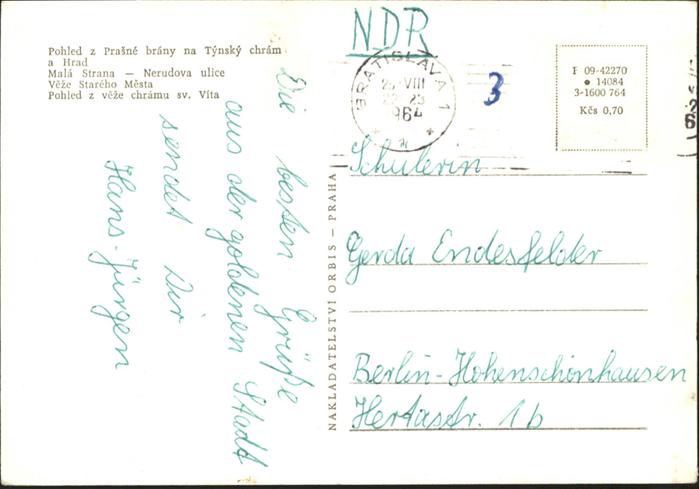 Pohled z Prašné brány na Týnský chrám
a Hrad
Malá Strana — Nerudova ulice
Věže Starého Města
Pohled z věže chrámu sv. Víta
NDR
BRATISLAVA 1
VIII
3
F 09-42270
● 14084
3-1600 764
Kčs 0,70
Die besten Grüße
aus der goldenen Stadt
sendet Dir
Hans-Jürgen
NAKLADATELSTVÍ ORBIS — PRAHA
Schülerin
Gerda Endesfelder
Berlin-Hohenschönhausen
Hertastr. 1b